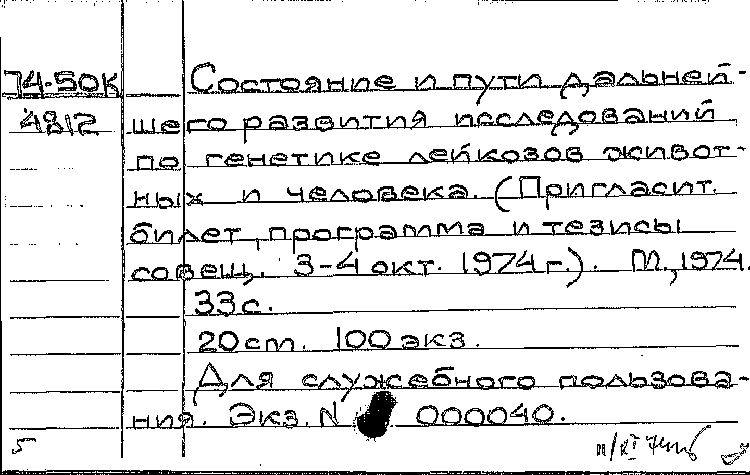 74-50К Состояние и пути дальней-
4812 шего развития исследований
по генетике лейкозов живот-
ных и человека. (Пригласит.
билет, программа и тезисы
совещ. 3-4 окт. 1974 г.). М., 1974.
33 с.
20 см. 100 экз.
Для служебного пользова-
ния. Экз. N 000040.
5